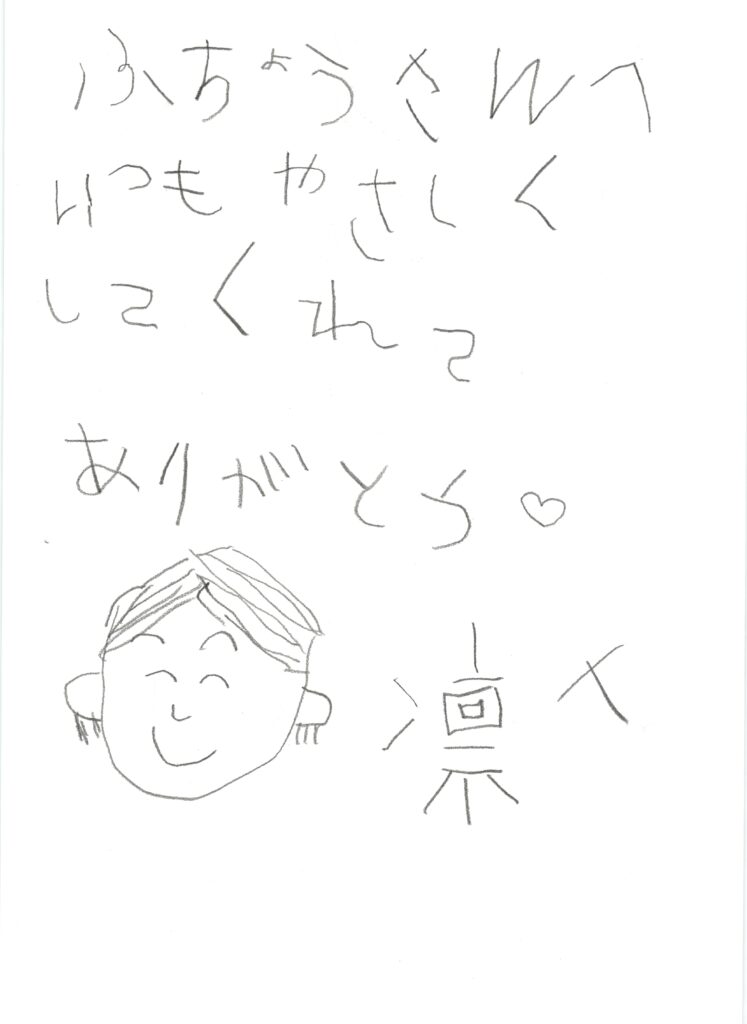 ふちょうさんへ
いつもやさしく
してくれて
ありがとう♡
凛人